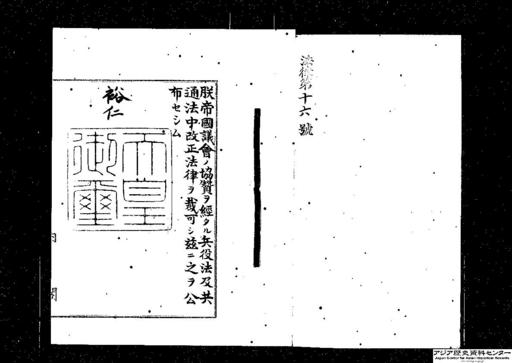 法律第十六號
朕帝國議會ノ協贊ヲ經タル兵役法及共
通法中改正法律ヲ裁可シ茲ニ之ヲ公
布セシム
裕仁
天皇
御璽
内
閣
アジア歴史資料センター
Japan Center for Asian Historical Records